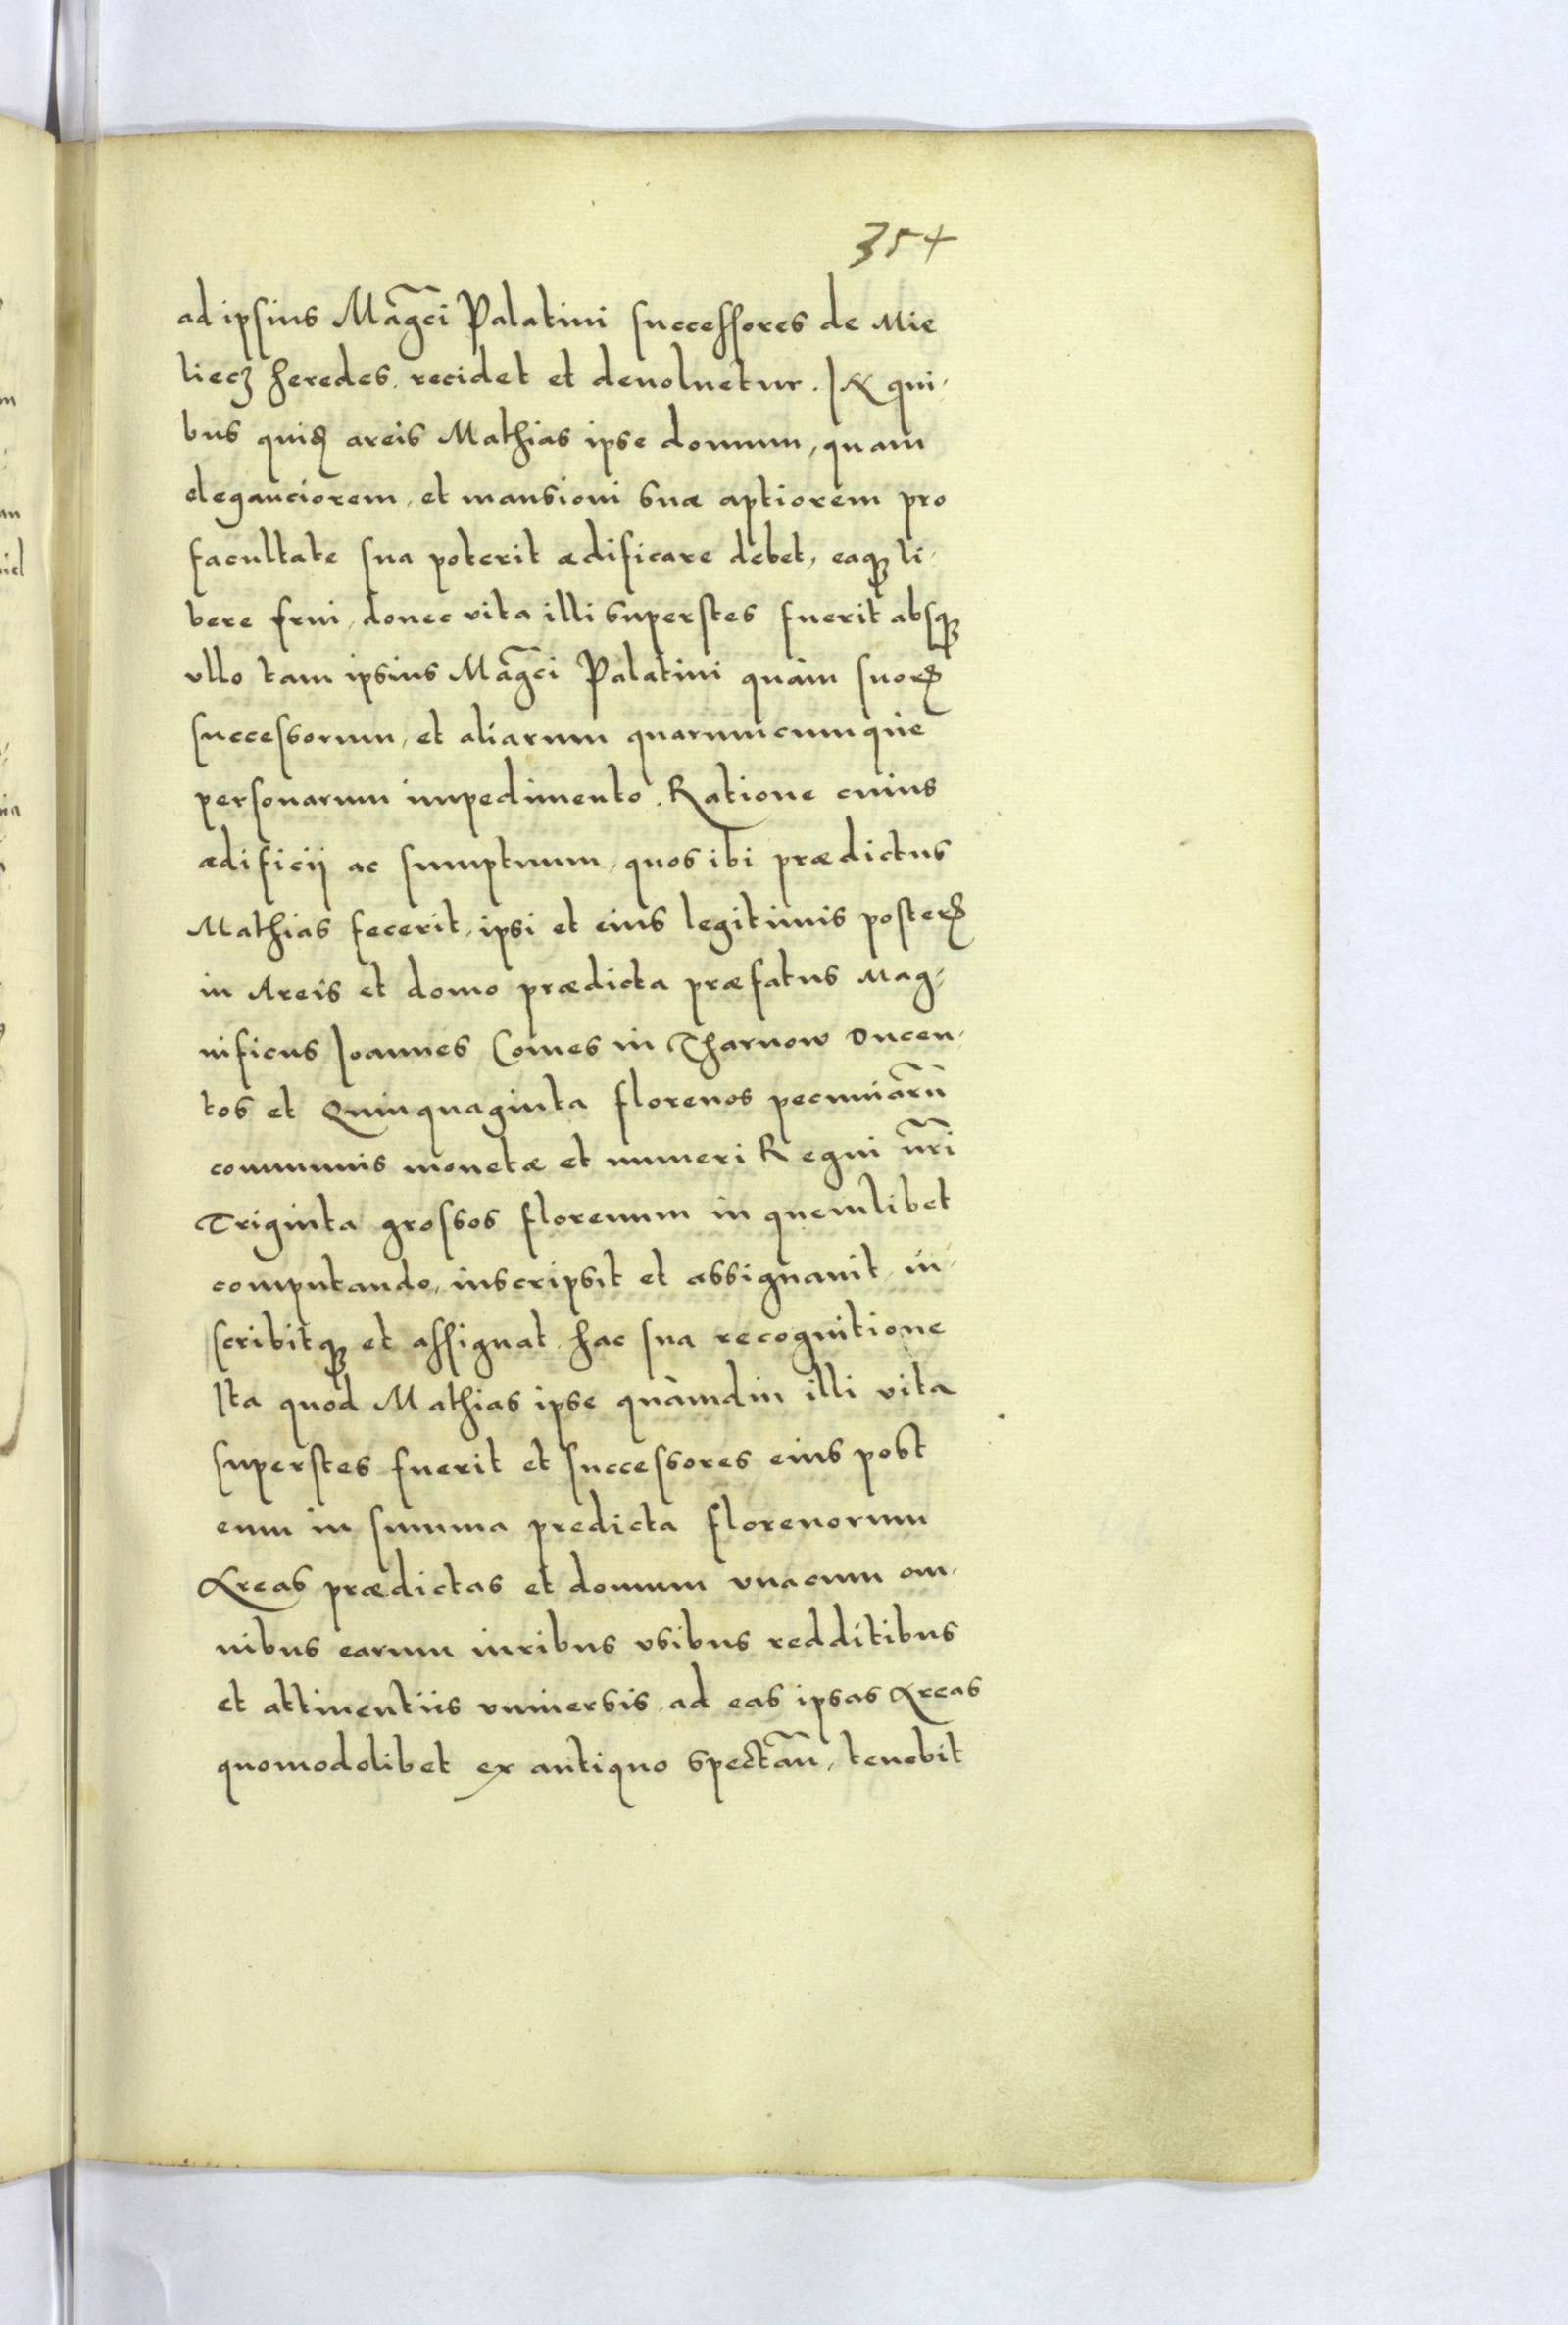 354
ad ipsius Mag̃ci Palatini successores de Mie
liecz heredes. recidet et deuoluetur. In qui-
bus quiđ areis Mathias ipse domum, quam
eleganciorem, et mansioni suæ aptiorem pro
facultate sua poterit ædificare debet, eaqꝫ li-
bere frui, donec vita illi superstes fuerit absqꝫ
vllo tam ipsius Mag̃ci Palatini quàm suoꝝ
successorum, et aliarum quarumcumque
personarum impedimento. Ratione cuius
ædificij ac sumptuum, quos ibi prædictus
Mathias fecerit, ipsi et eius legitimis posteꝝ
in Areis et domo prædicta præfatus Mag-
nificus Joannes Comes in Tharnow Ducen-
tos et Quinquaginta florenos pecuniarũ
communis monetæ et numeri Regni nr̃i
Triginta grossos florenum in quemlibet
computando, inscripsit et assignauit, in-
scribitqꝫ et assignat hac sua recognitione
Ita quòd Mathias ipse quàmdiu illi vita
superstes fuerit et successores eius post
eum in summa predicta florenorum
Areas prædictas et domum vnacum om-
nibus earum iuribus vsibus redditibus
et attinentiis vniuersis ad eas ipsas Areas
quomodolibet ex antiquo spectañ, tenebit